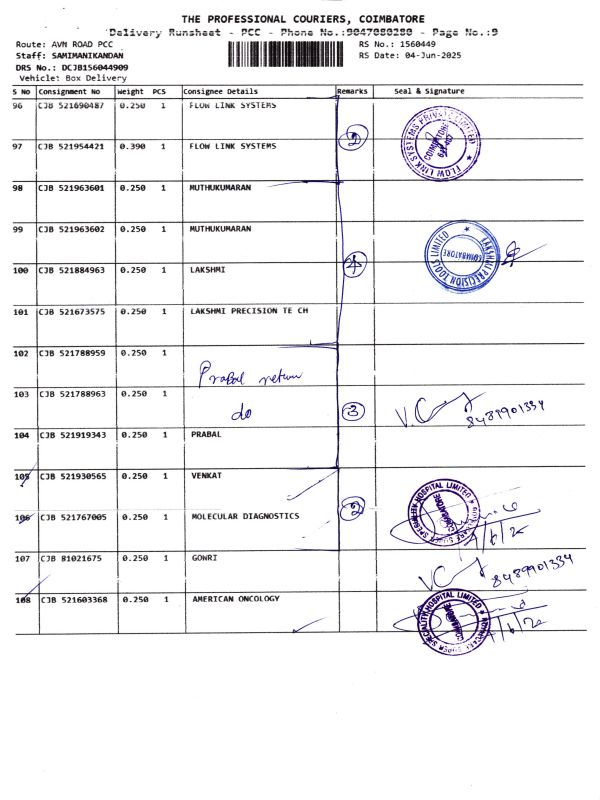 THE PROFESSIONAL COURIERS, COIMBATORE
Delivery Runsheet - PCC - Phone No.:9047080280 - Page No.:9
Route: AVN ROAD PCC
RS No.: 1560449
Staff: SAMIMANIKANDAN
RS Date: 04-Jun-2025
DRS No.: DCJB156044909
Vehicle: Box Delivery
S No Consignment No Weight PCS Consignee Details Remarks Seal & Signature
96 CJB 521690487 0.250 1 FLOW LINK SYSTEMS
2
FLOW LINK SYSTEMS PRIVATE LIMITED
COIMBATORE
97 CJB 521954421 0.390 1 FLOW LINK SYSTEMS
98 CJB 521963601 0.250 1 MUTHUKUMARAN
99 CJB 521963602 0.250 1 MUTHUKUMARAN
4
LAKSHMI PRECISION TOOLS LIMITED
COIMBATORE
100 CJB 521884963 0.250 1 LAKSHMI
101 CJB 521673575 0.250 1 LAKSHMI PRECISION TE CH
102 CJB 521788959 0.250 1
Prabal return
103 CJB 521788963 0.250 1 do
3
8489901334
104 CJB 521919343 0.250 1 PRABAL
105 CJB 521930565 0.250 1 VENKAT
2
SPECIALITY HOSPITAL LIMITED
COIMBATORE
106 CJB 521767005 0.250 1 MOLECULAR DIAGNOSTICS
107 CJB 81021675 0.250 1 GOWRI
8489901334
108 CJB 521603368 0.250 1 AMERICAN ONCOLOGY
SUPER SPECIALITY HOSPITAL LIMITED
COIMBATORE